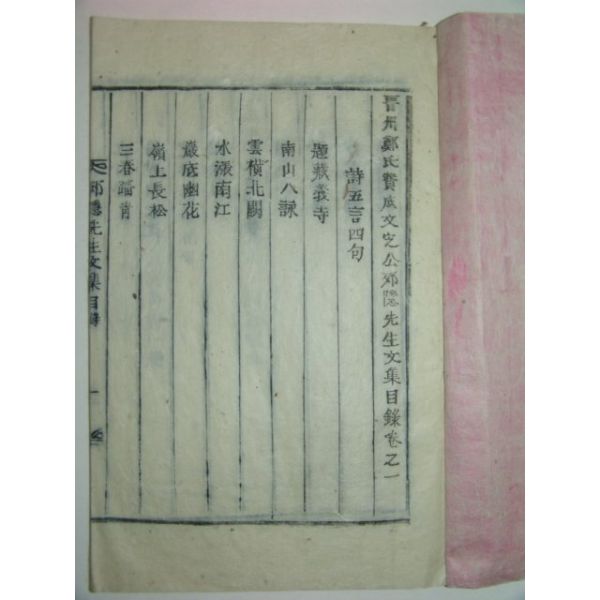 晋州鄭氏賛成文定公郊隱先生文集目錄卷之一
詩五言四句
題藏義寺
南山八詠
雲橫北闕
水漲南江
巖底幽花
嶺上長松
三春踏靑
郊隱先生文集目錄
一